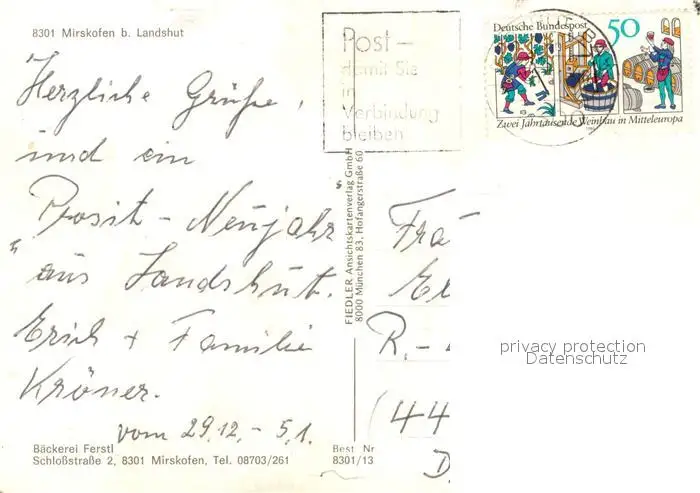 8301 Mirskofen b. Landshut
Herzliche Grüße,
und ein
Prosit - Neujahr
aus Landshut.
Erich + Familie
Kröner.
vom 29.12. - 5.1.
Bäckerei Ferstl
Schloßstraße 2, 8301 Mirskofen, Tel. 08703/261
Post -
damit Sie
in
Verbindung
bleiben
FIEDLER Ansichtskartenverlag GmbH
8000 München 83, Hofangerstraße 60
Best Nr
8301/13
Deutsche Bundespost 50
Zwei Jahrtausende Weinbau in Mitteleuropa
Frä
R.-
(44
D
privacy protection
Datenschutz